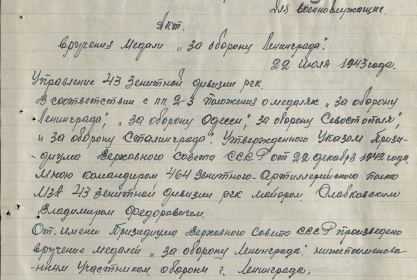 Для военнослужащих.
Акт.
вручения медали „за оборону Ленинграда".
22 июля 1943 года.
Управление 43 Зенитной дивизии РГК.
В соответствии с п.п. 2-3 Положения о медалях „за оборону
Ленинграда", „за оборону Одессы", за оборону Севостополя",
и за оборону Сталинграда". Утвержденного Указом Прези-
диума Верховного Совета СССР от 22 декабря 1942 года.
Мною командиром 464 зенитного-Артиллерийского полка
МЗА 43 Зенитной дивизии РГК майором Славковским
Владимиром Федоровичем.
От имени Президиума Верховного Совета СССР произведено
вручение медалей „за оборону Ленинграда" нижепоименова-
нным участникам обороны г. Ленинграда.